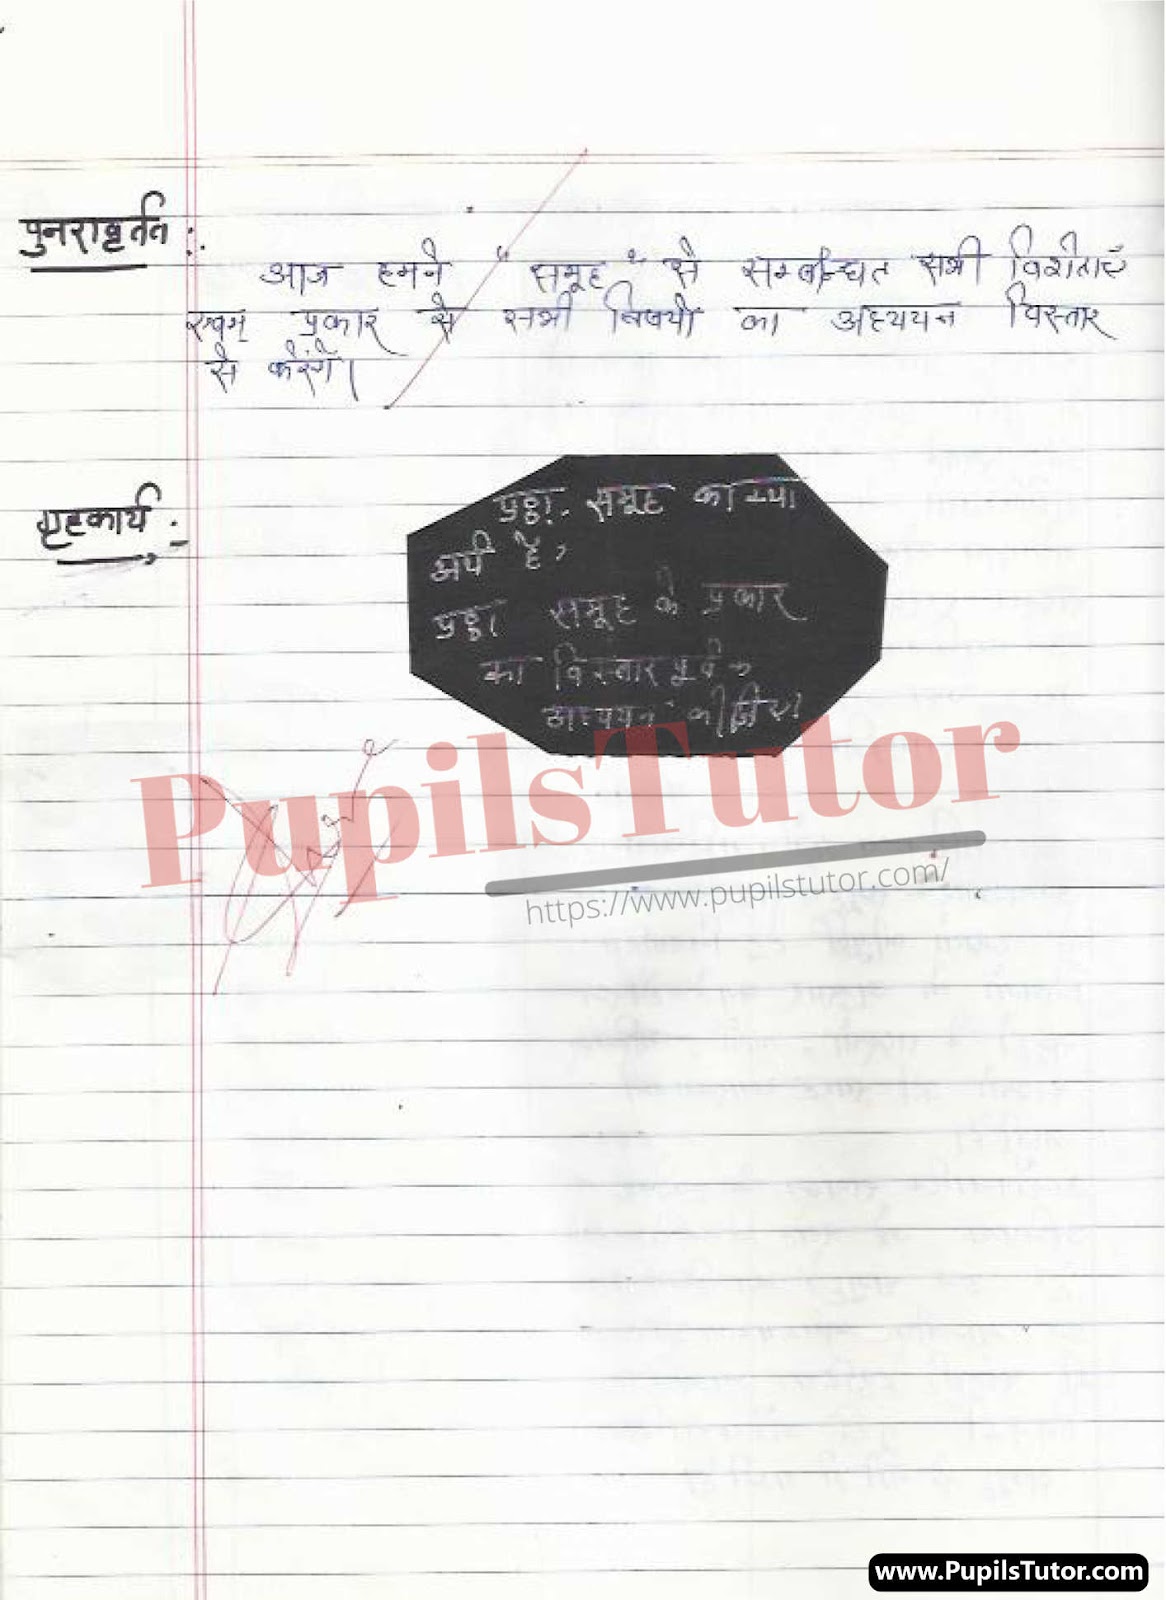 पुनरावृर्तन :.
आज हमने "समूह" से सम्बन्धित सभी विशेताएं
एवम् प्रकार से सभी विषयों का अध्ययन विस्तार
से करेंगें।
गृहकार्य :
समूह का क्या
अर्थ है?
समूह के प्रकार
का विस्तार पूर्वक
अध्ययन कीजिए।
PupilsTutor
https://www.pupilstutor.com/
www.PupilsTutor.com